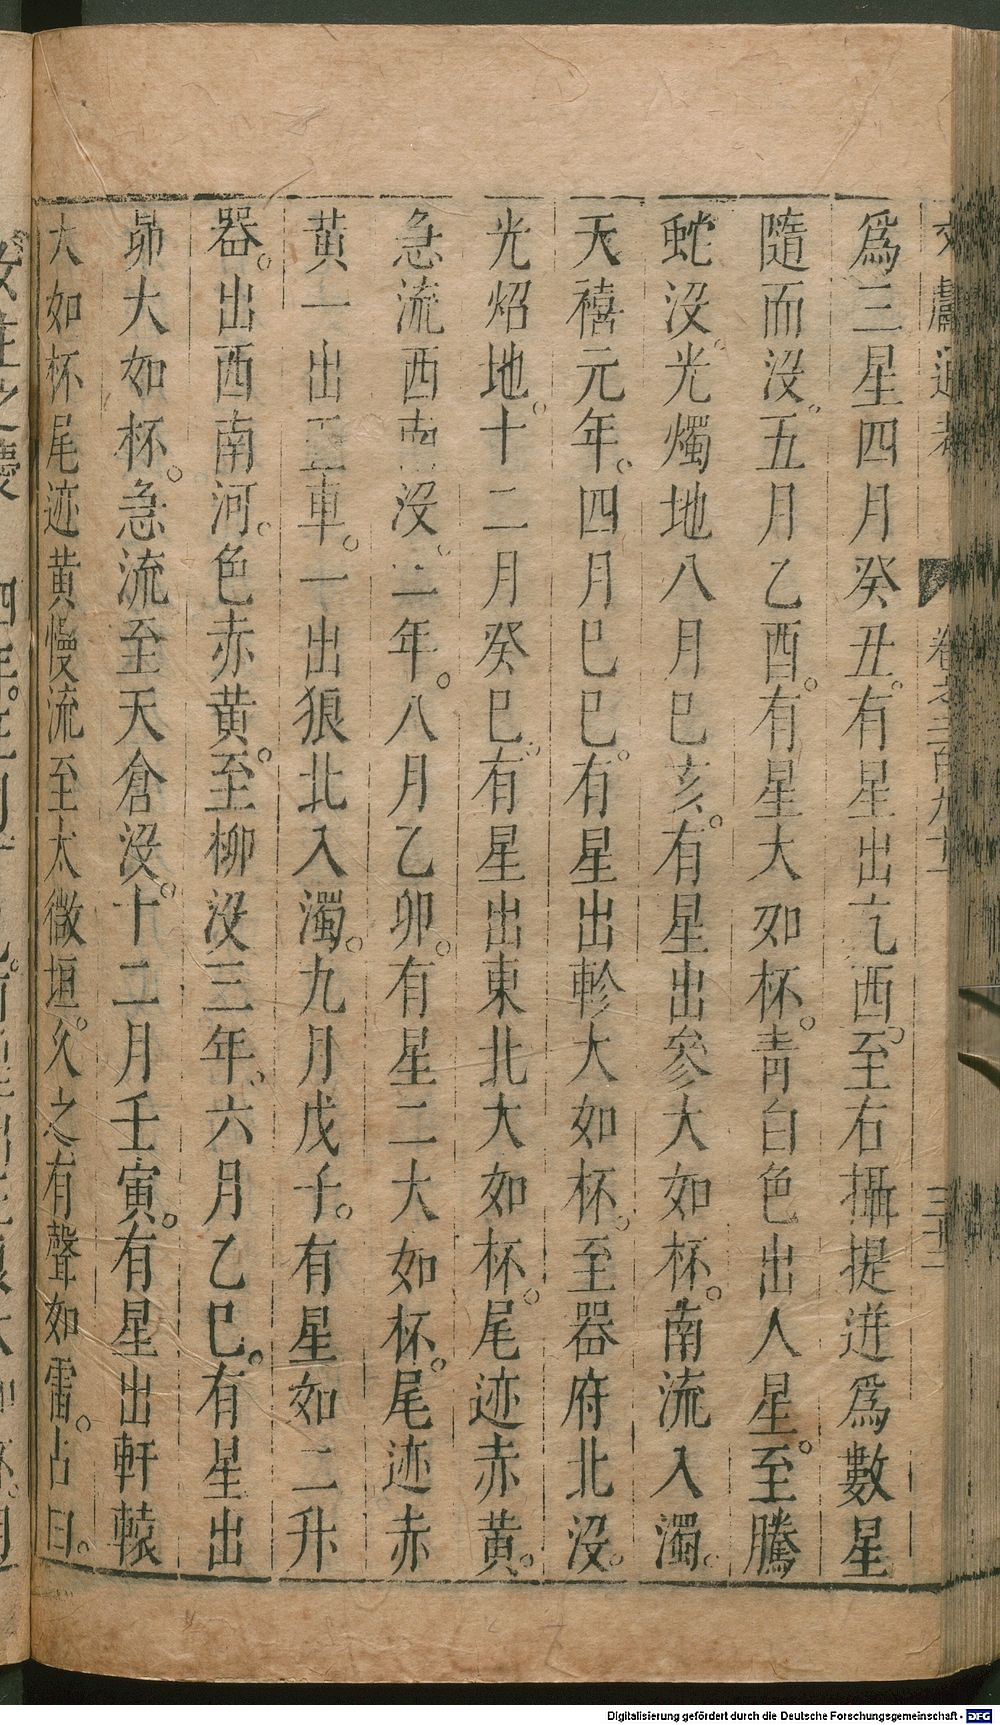 文獻通考 卷之二百九十一 三十一
爲三星四月癸丑有星出亢西至右攝提迸爲數星
隨而沒五月乙酉有星大如杯青白色出人星至騰
蛇沒光燭地八月己亥有星出參大如杯南流入濁
天禧元年四月己巳有星出軫大如杯至器府北沒
光炤地十二月癸巳有星出東北大如杯尾迹赤黃
急流西南沒二年八月乙卯有星二大如杯尾迹赤
黃一出五車一出狼北入濁九月戊子有星如二升
器出西南河色赤黃至柳沒三年六月乙巳有星出
昴大如杯急流至天倉沒十二月壬寅有星出軒轅
大如杯尾迹黃慢流至太微垣久之有聲如雷占曰
Digitalisierung gefördert durch die Deutsche Forschungsgemeinschaft - DFG